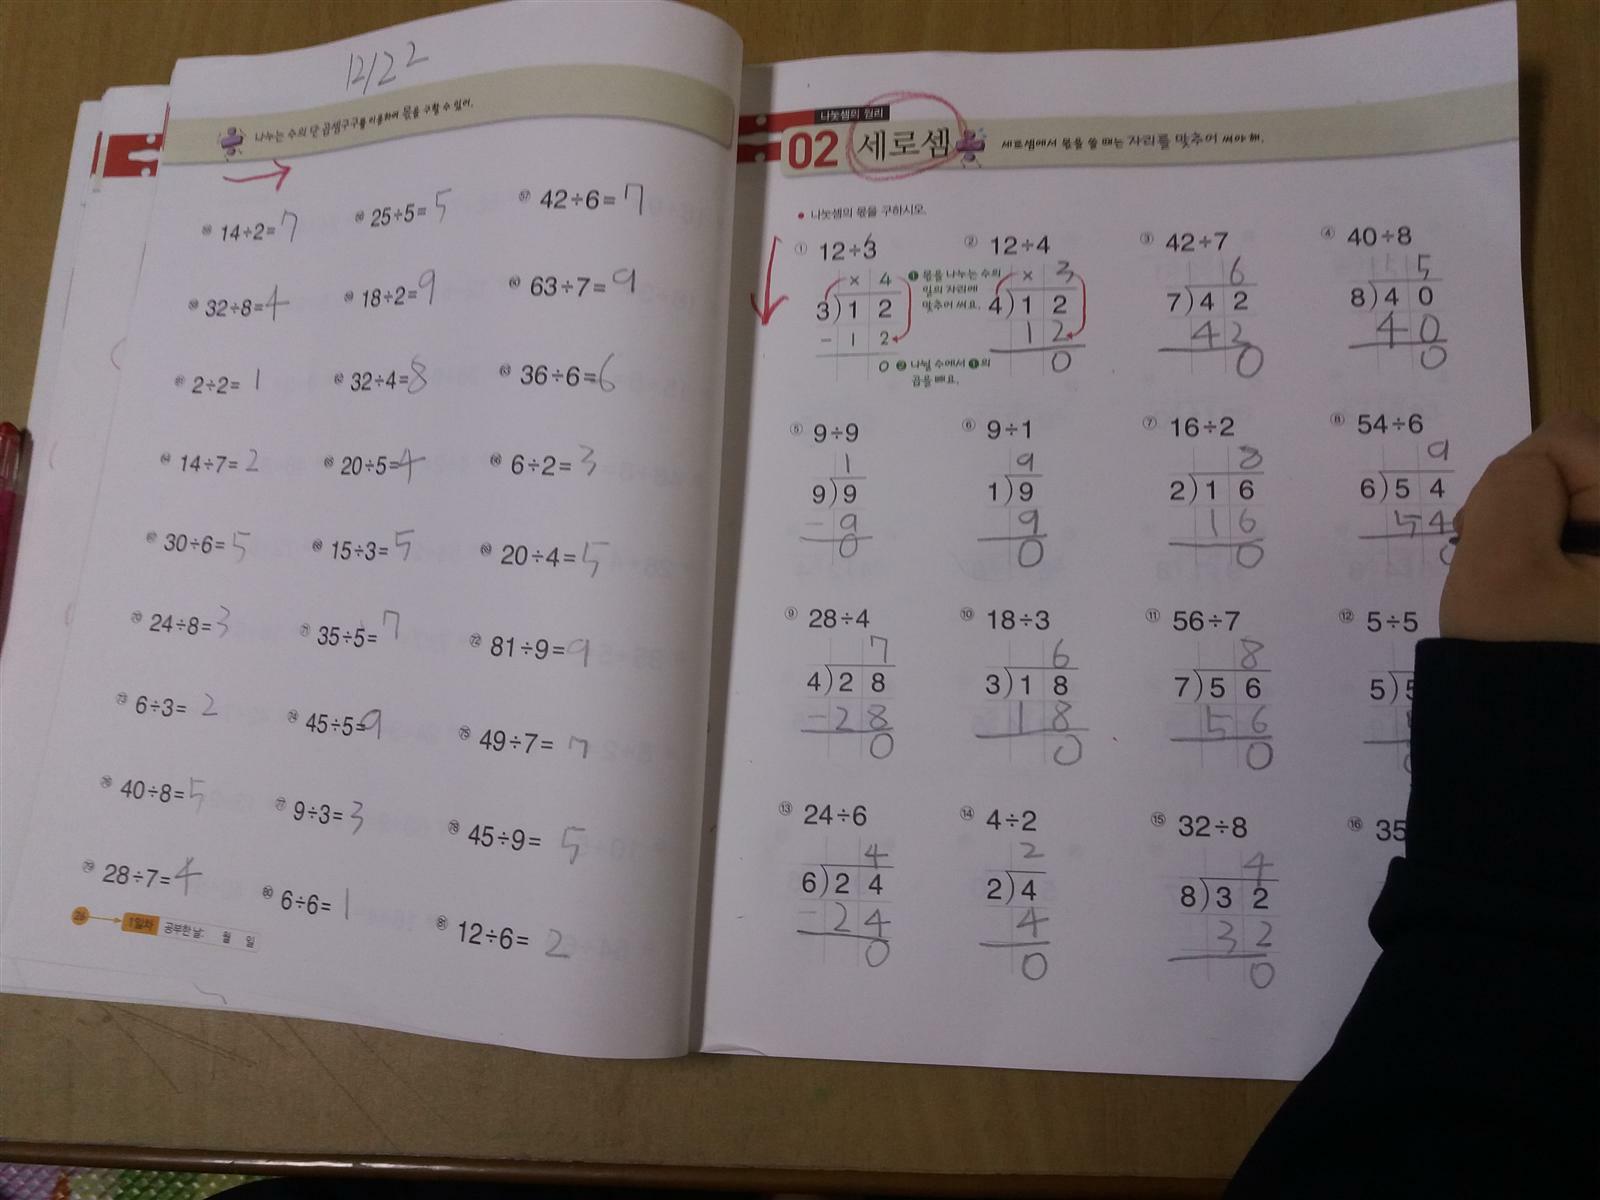 12/22
나누는 수의 단 곱셈구구를 이용하여 몫을 구할 수 있어.
55 14÷2=7
56 25÷5=5
57 42÷6=7
58 32÷8=4
59 18÷2=9
60 63÷7=9
61 2÷2=1
62 32÷4=8
63 36÷6=6
64 14÷7=2
65 20÷5=4
66 6÷2=3
67 30÷6=5
68 15÷3=5
69 20÷4=5
70 24÷8=3
71 35÷5=7
72 81÷9=9
73 6÷3=2
74 45÷5=9
75 49÷7=7
76 40÷8=5
77 9÷3=3
78 45÷9=5
79 28÷7=4
80 6÷6=1
81 12÷6=2
26 1일차 공부한 날: 월 일
나눗셈의 원리
02 세로셈 세로셈에서 몫을 쓸 때는 자리를 맞추어 써야 해.
● 나눗셈의 몫을 구하시오.
① 12÷3
× 4
3)1 2
- 1 2
0
❶ 몫을 나누는 수의
일의 자리에
맞추어 써요.
❷ 나뉠 수에서 ❶의
곱을 빼요.
② 12÷4
× 3
4)1 2
1 2
0
③ 42÷7
6
7)4 2
4 2
0
④ 40÷8
5
8)4 0
4 0
0
⑤ 9÷9
1
9)9
-9
0
⑥ 9÷1
9
1)9
9
0
⑦ 16÷2
8
2)1 6
1 6
0
⑧ 54÷6
9
6)5 4
5 4
⑨ 28÷4
7
4)2 8
-2 8
0
⑩ 18÷3
6
3)1 8
1 8
0
⑪ 56÷7
8
7)5 6
5 6
0
⑫ 5÷5
5)5
⑬ 24÷6
4
6)2 4
-2 4
0
⑭ 4÷2
2
2)4
4
0
⑮ 32÷8
4
8)3 2
3 2
0
⑯ 35